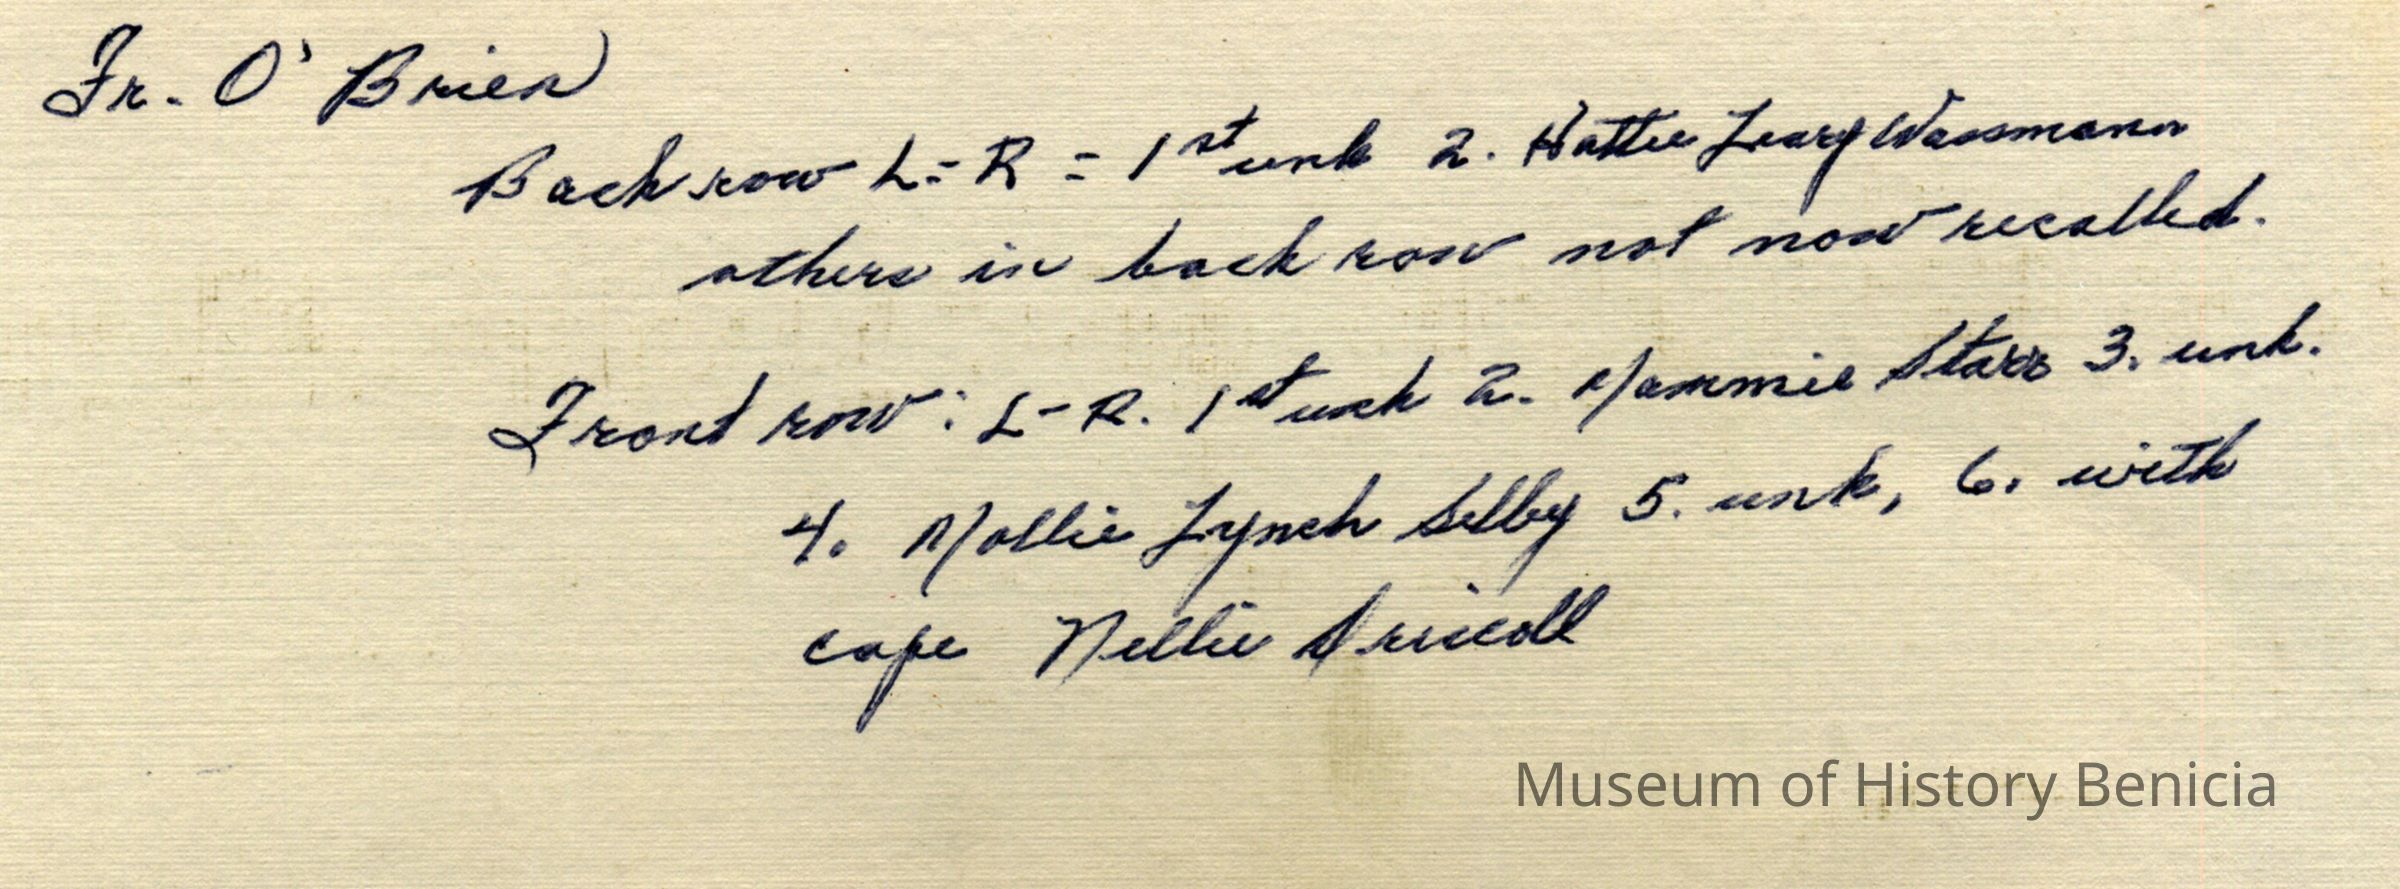 Fr. O'Brien)
Back row L-R = 1st unk 2. Hattie Leary Wassmann
others in back row not now recalled.
Front row: L-R. 1st unk 2. Mammie Starr 3. unk.
4. Mollie Lynch Selby 5. unk, 6. with
cape Nellie Driscoll
Museum of History Benicia